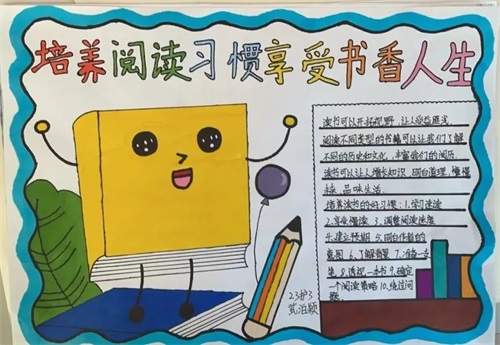 培养阅读习惯享受书香人生
读书可以开拓视野,让人受益匪浅,
阅读不同类型的书籍可以让我们了解
不同的历史和文化,丰富我们的阅历.
读书可以让人增长知识,明白道理,慢慢
品味生活.
培养读书的好习惯:1.学习速读
2.享受慢读 3.调整阅读速度
4.建立预期 5.明白作者的
意图 6.了解背景 7.准备一支
笔 8.读一本书 9.确定
一个阅读策略 10.绕过问
题.
23护3